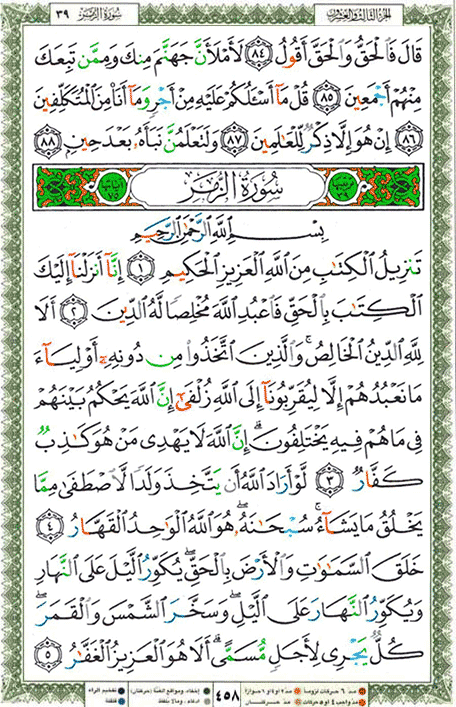 الجزء الثالث والعشرون سورة الزمر ٣٩
قَالَ فَالْحَقُّ وَالْحَقَّ أَقُولُ ٨٤ لَأَمْلَأَنَّ جَهَنَّمَ مِنكَ وَمِمَّن تَبِعَكَ
مِنْهُمْ أَجْمَعِينَ ٨٥ قُلْ مَا أَسْـَٔلُكُمْ عَلَيْهِ مِنْ أَجْرٍ وَمَا أَنَا۠ مِنَ الْمُتَكَلِّفِينَ
٨٦ إِنْ هُوَ إِلَّا ذِكْرٌ لِّلْعَالَمِينَ ٨٧ وَلَتَعْلَمُنَّ نَبَأَهُۥ بَعْدَ حِينٍ ٨٨
سُورَةُ الزُّمَرِ
بِسْمِ اللَّهِ الرَّحْمَٰنِ الرَّحِيمِ
تَنزِيلُ الْكِتَٰبِ مِنَ اللَّهِ الْعَزِيزِ الْحَكِيمِ ١ إِنَّا أَنزَلْنَا إِلَيْكَ
الْكِتَٰبَ بِالْحَقِّ فَاعْبُدِ اللَّهَ مُخْلِصًا لَّهُ الدِّينَ ٢ أَلَا
لِلَّهِ الدِّينُ الْخَالِصُ ۚ وَالَّذِينَ اتَّخَذُوا۟ مِن دُونِهِۦٓ أَوْلِيَآءَ
مَا نَعْبُدُهُمْ إِلَّا لِيُقَرِّبُونَآ إِلَى اللَّهِ زُلْفَىٰٓ إِنَّ اللَّهَ يَحْكُمُ بَيْنَهُمْ
فِى مَا هُمْ فِيهِ يَخْتَلِفُونَ ۗ إِنَّ اللَّهَ لَا يَهْدِى مَنْ هُوَ كَٰذِبٌ
كَفَّارٌ ٣ لَّوْ أَرَادَ اللَّهُ أَن يَتَّخِذَ وَلَدًا لَّاصْطَفَىٰ مِمَّا
يَخْلُقُ مَا يَشَآءُ ۚ سُبْحَٰنَهُۥ ۖ هُوَ اللَّهُ الْوَٰحِدُ الْقَهَّارُ ٤
خَلَقَ السَّمَٰوَٰتِ وَالْأَرْضَ بِالْحَقِّ ۖ يُكَوِّرُ الَّيْلَ عَلَى النَّهَارِ
وَيُكَوِّرُ النَّهَارَ عَلَى الَّيْلِ ۖ وَسَخَّرَ الشَّمْسَ وَالْقَمَرَ ۖ
كُلٌّ يَجْرِى لِأَجَلٍ مُّسَمًّى ۗ أَلَا هُوَ الْعَزِيزُ الْغَفَّٰرُ ٥
٤٥٨